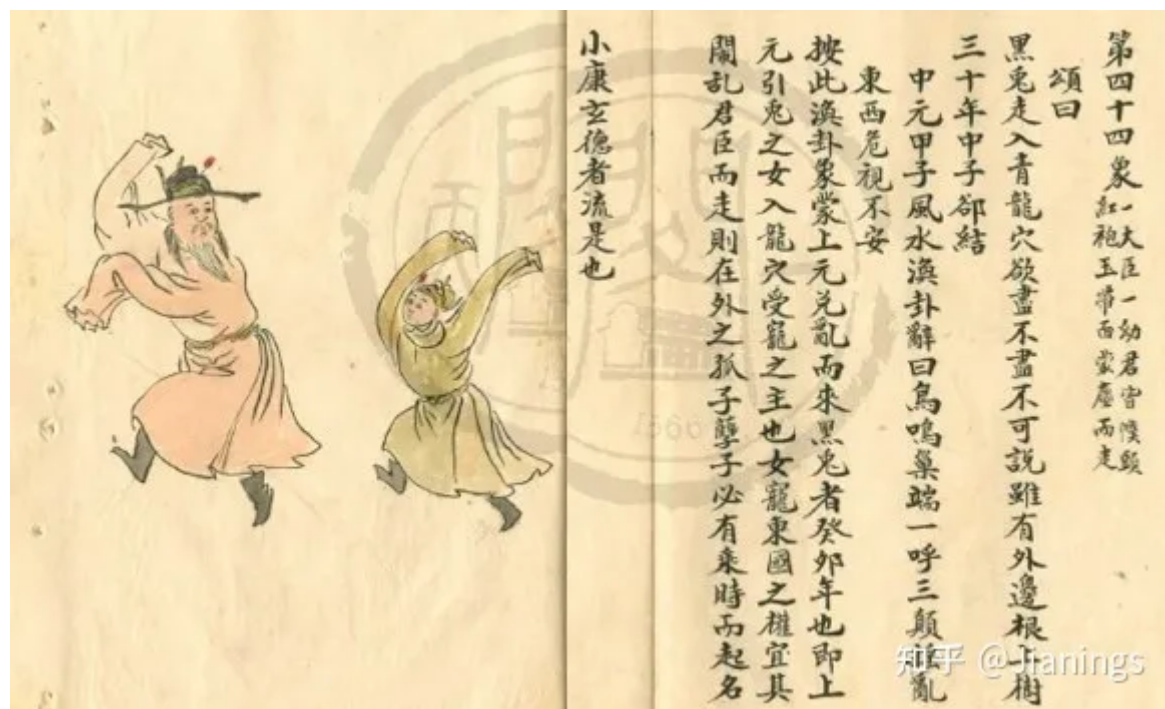 第四十四象
一大臣一幼君皆幞頭
紅袍玉帶西蒙塵而走
頌曰
黑兎走入青龍穴欲盡不盡不可説雖有外邊根上樹
三十年中子郤結
中元甲子風水渙卦辭曰鳥鳴巢端一呼三顛亂
東西危視不安
按此渙卦象蒙上元兌亂而來黑兎者癸卯年也即上
元引兎之女入龍穴受寵之主也女寵東國之權宜其
鬧乱君臣而走則在外之孤子孽子必有乘時而起名
小康玄德者流是也
知乎 @Jianings